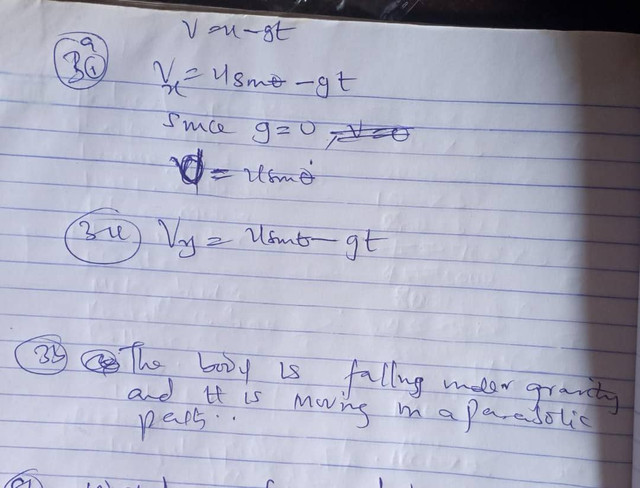 V = u - gt
3a(i) Vx = usinθ - gt
Since g = 0, V = 0
V = usinθ
3ii Vy = usinθ - gt
3b The body is falling under gravity
and it is moving in a parabolic
path..